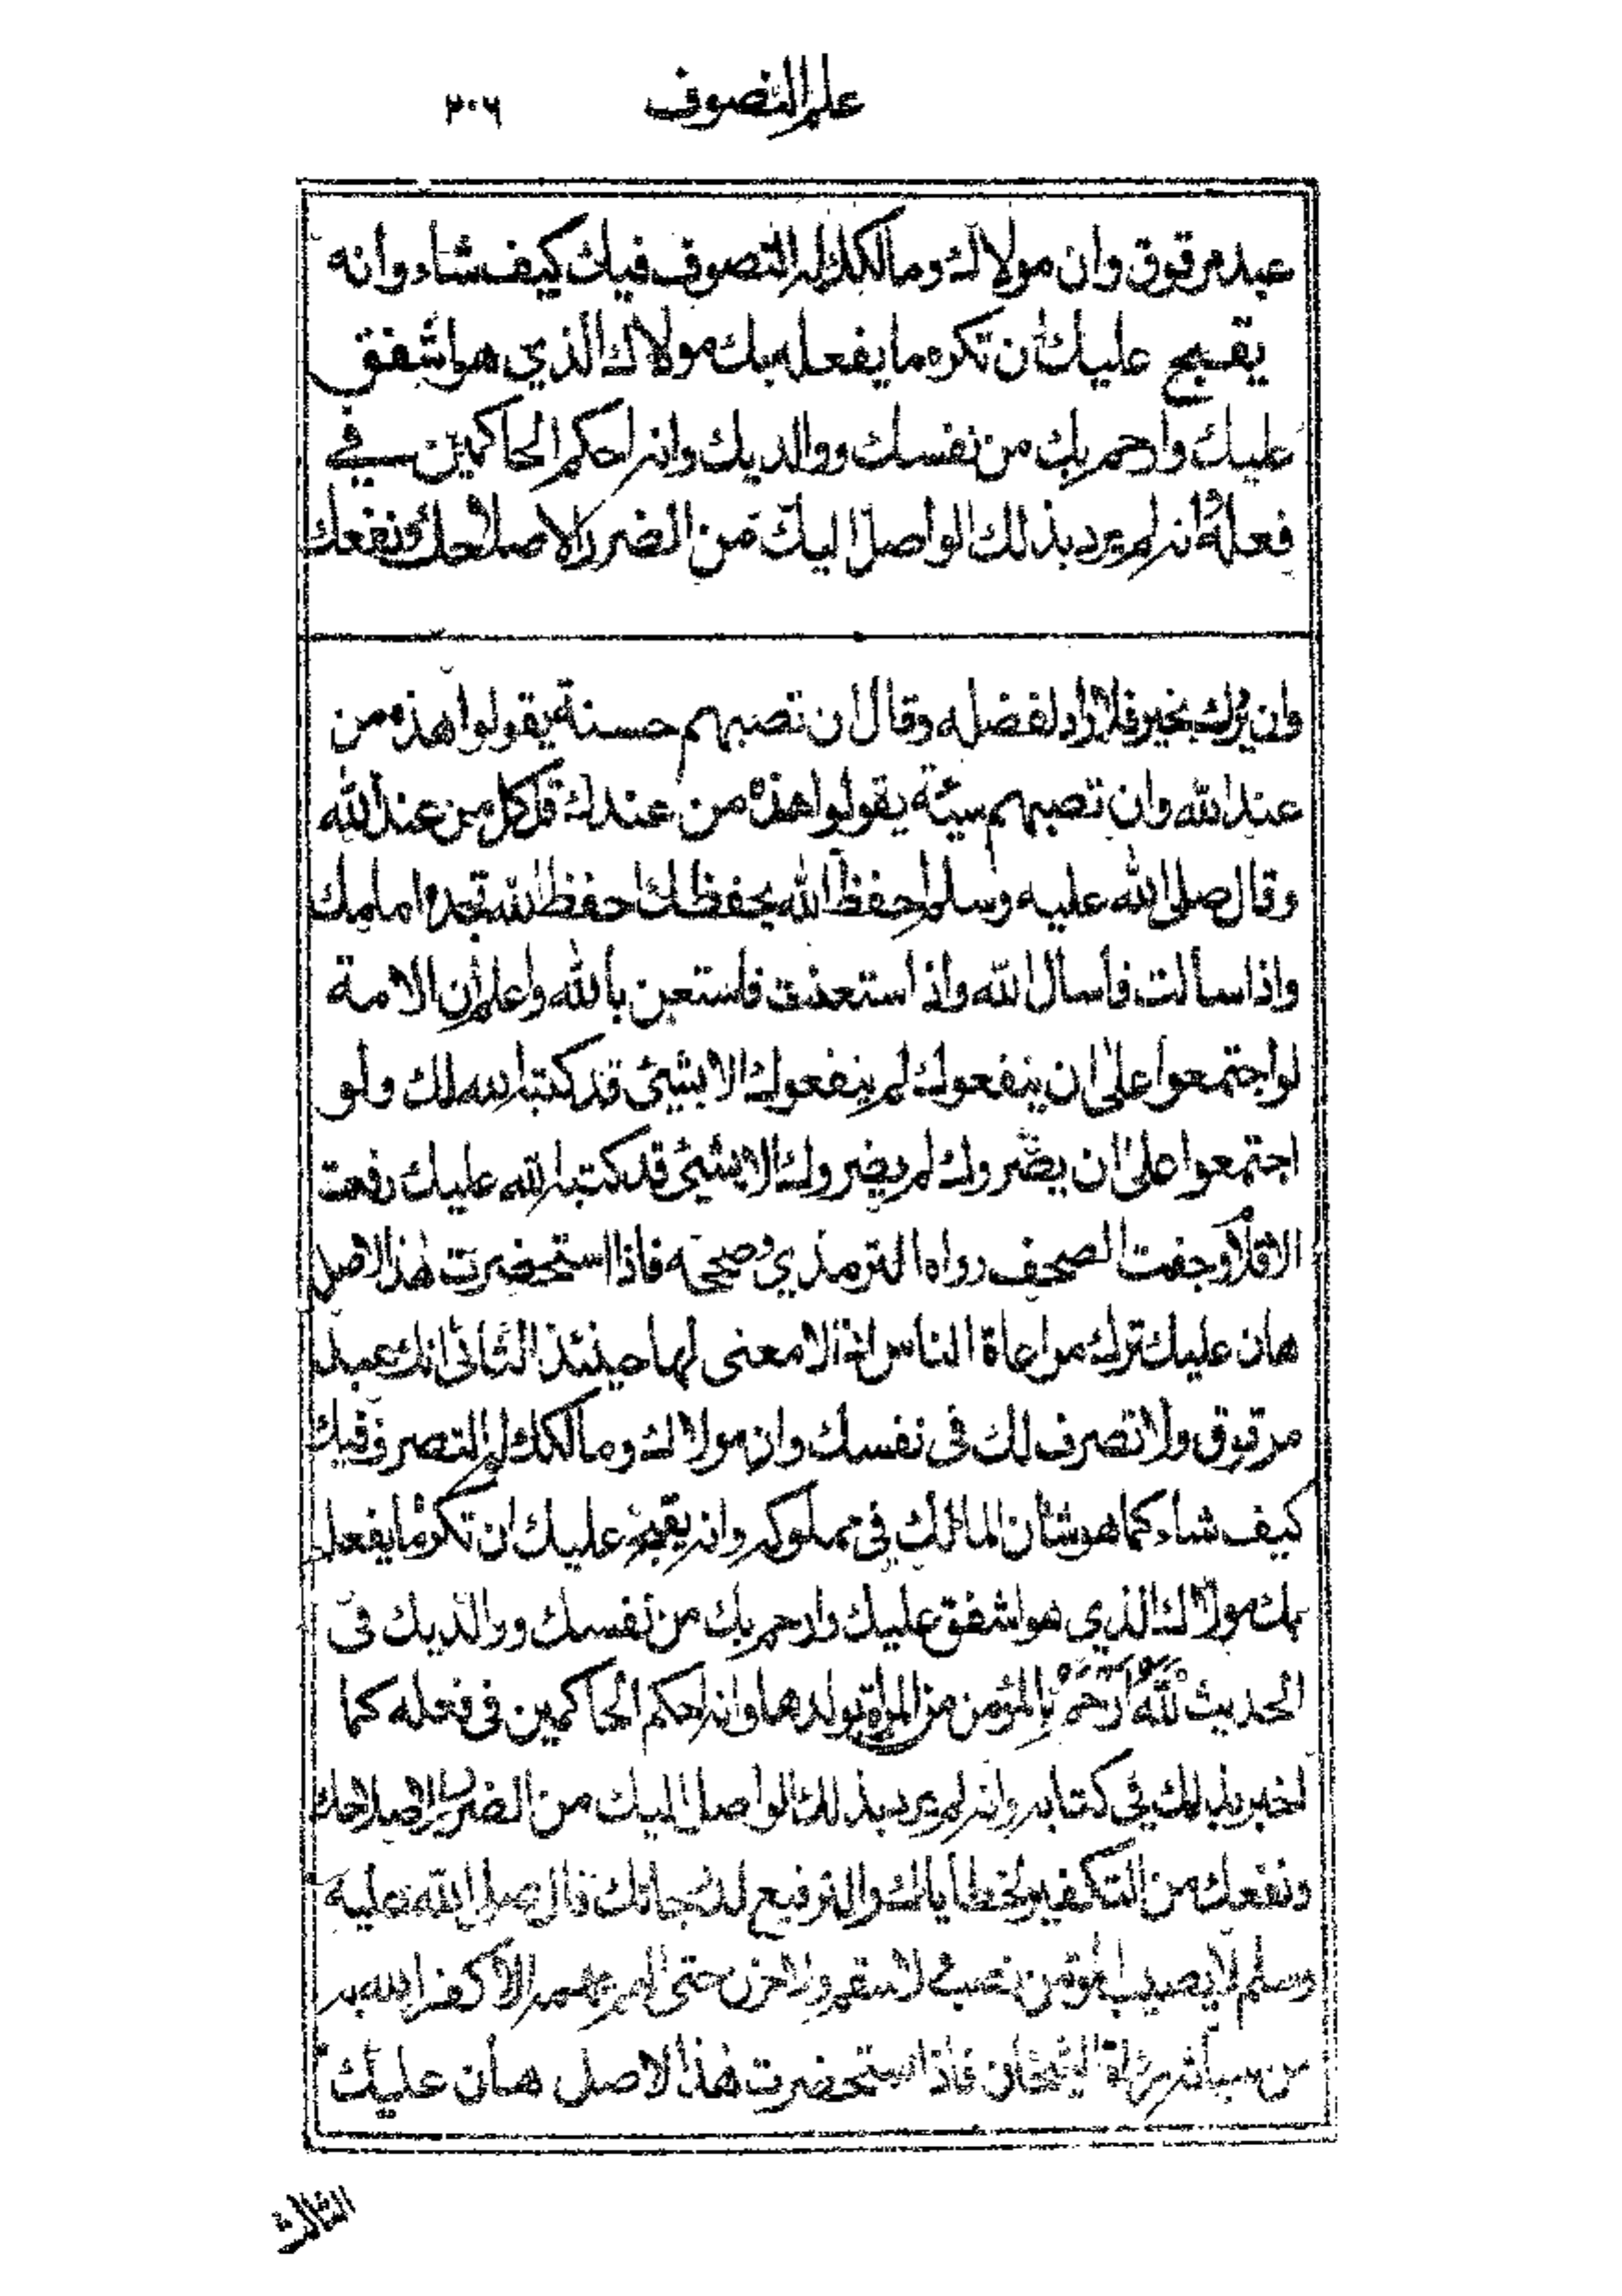 علم التصوف ٢٠٦
عبد مرقوق وان مولاك ومالكك له التصوف فيك كيف شاء وانه
يقبح عليك أن تكره ما يفعله بك مولاك الذي هو اشفق
عليك وارحم بك من نفسك ووالديك وانه احكم الحاكمين في
فعله وانه لم يرد بذلك الواصل اليك من الضرر الا صلاحك ونفعك
وان يردك بخير فلا راد لفضله وقال ان تصبهم حسنة يقولوا هذه من
عند الله وان تصبهم سيئة يقولوا هذه من عندك قل كل من عند الله
وقال صلى الله عليه وسلم احفظ الله يحفظك احفظ الله تجده امامك
واذا سالت فأسال الله واذا استعنت فاستعن بالله واعلم أن الامة
لو اجتمعوا على ان ينفعوك لم ينفعوك الا بشيئ قد كتبه الله لك ولو
اجتمعوا على ان يضروك لم يضروك الا بشيئ قد كتبه الله عليك رفعت
الاقلام وجفت الصحف رواه الترمذي وصححه فاذا استحضرت هذا الاصل
هان عليك ترك مراعاة الناس اذ لا معنى لها حينئذ الثانى انك عبد
مرقوق ولا تصرف لك فى نفسك وان مولاك ومالكك له التصرف فيك
كيف شاء كما هو شأن المالك فى مملوكه وانه يقبح عليك ان تكره ما يفعله
بك مولاك الذي هو اشفق عليك وارحم بك من نفسك ووالديك فى
الحديث لله أرحم بالمؤمن من المرأة بولدها وانه احكم الحاكمين فى فعله كما
اخبر بذلك فى كتابه وانه لم يرد بذلك الواصل اليك من الضرر الا صلاحك
ونفعك من التكفير لخطاياك والترفيع لدرجاتك قال صلى الله عليه
وسلم لا يصيب المؤمن نصب ولا سقم ولا حزن حتى الهم يهمه الا كفر الله به
من سيأته رواه الشيخان فاذا استحضرت هذا الاصل هان عليك
الثالث